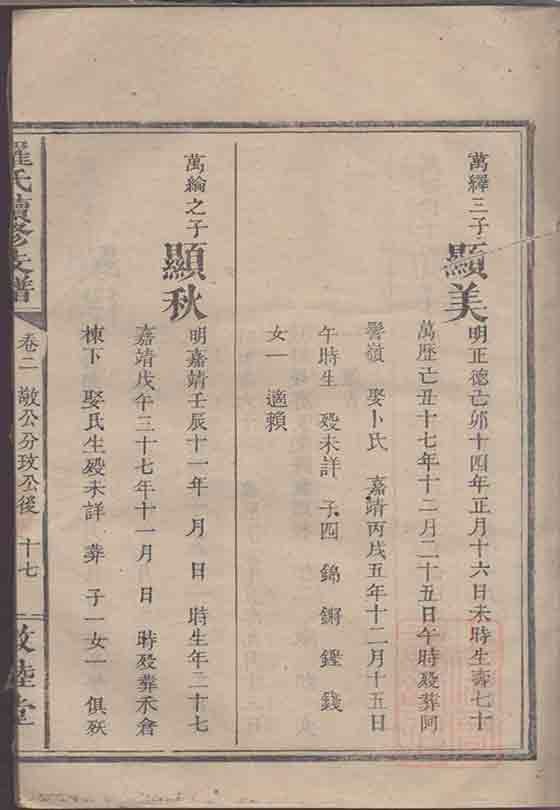 萬繹三子
顯美
明正德亡卯十四年正月十六日未時生壽七十
萬歷亡丑十七年十二月二十五日午時殁葬阿
髻嶺 娶卜氏 嘉靖丙戌五年十二月十五日
午時生 殁未詳 子四 錦 鏘 鏗 錢
女一 適賴
萬綸之子
顯秋
明嘉靖壬辰十一年 月 日 時生年二十七
嘉靖戊午三十七年十一月 日 時殁葬禾倉
棟下 娶氏生殁未詳 葬 子一女一 俱殀
羅氏續修支譜
卷二 敞公分玫公後 十七
敦睦堂